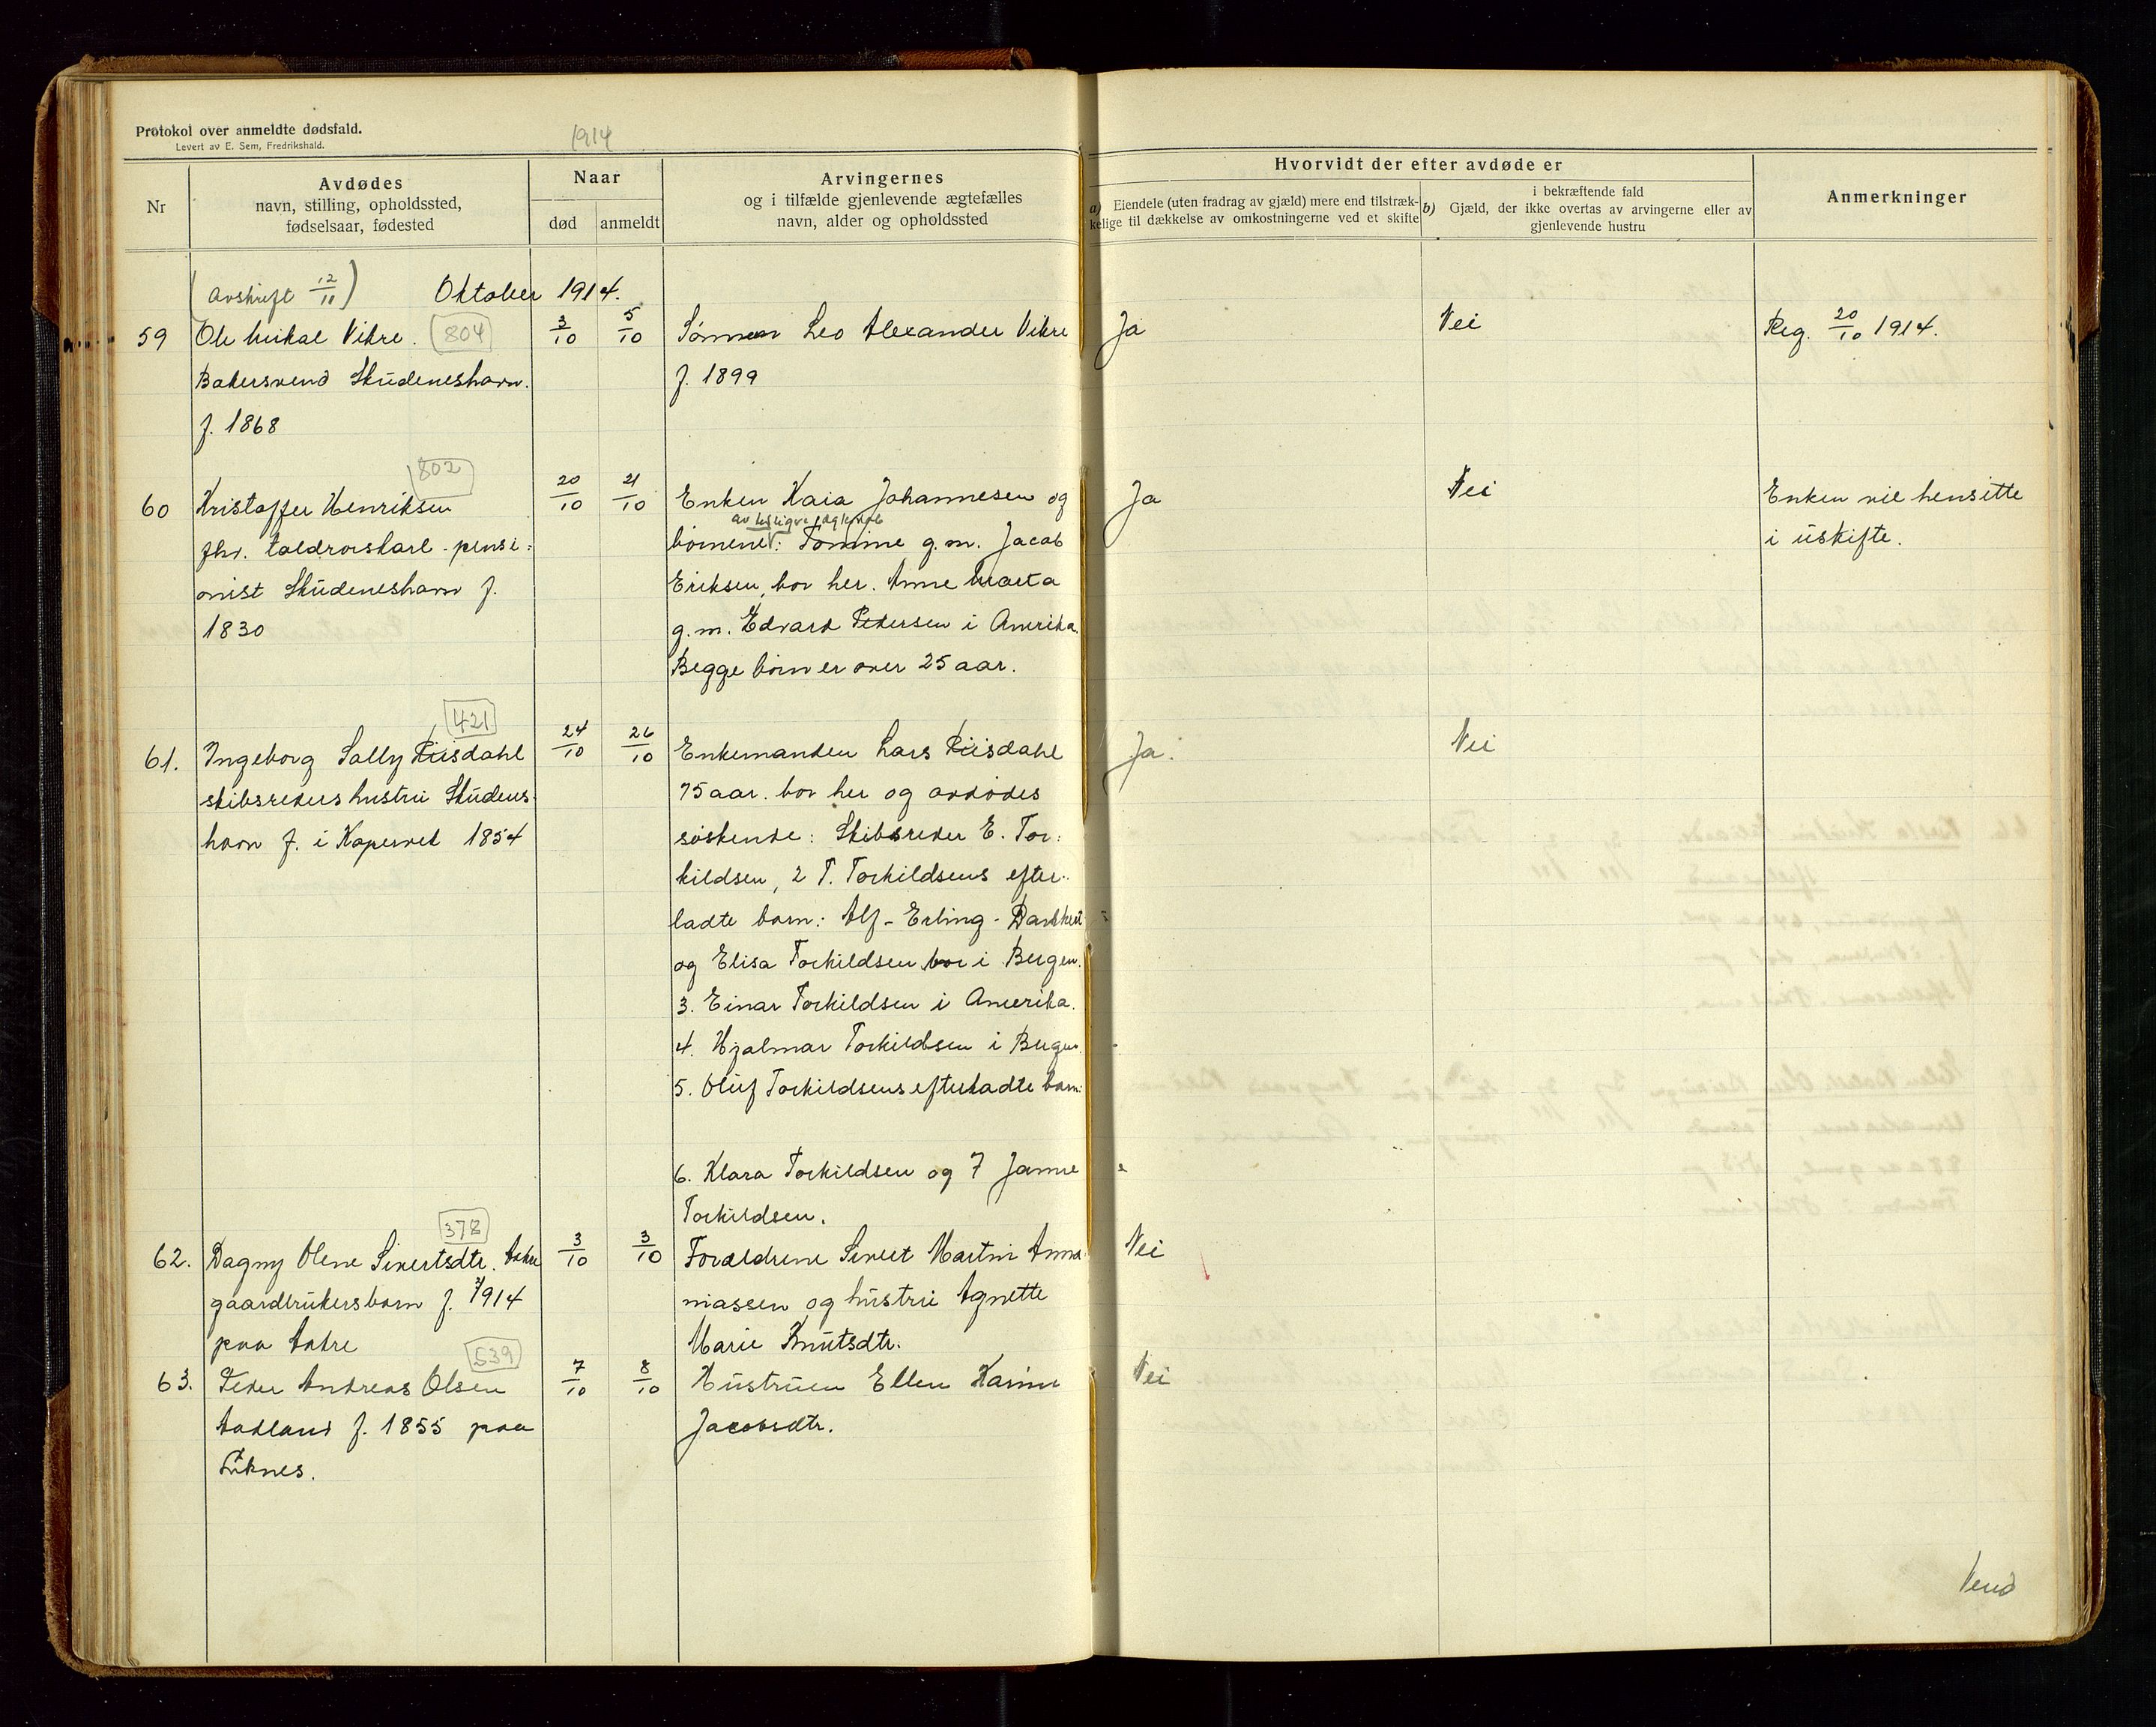 Protokol over anmeldte dødsfald.
Levert av E. Sem, Fredrikshald.
1914
Nr
Avdødes
navn, stilling, opholdssted,
fødselsaar, fødested
Naar
død
anmeldt
Arvingernes
og i tilfælde gjenlevende ægtefælles
navn, alder og opholdssted
Hvorvidt der efter avdøde er
a) Eiendele (uten fradrag av gjæld) mere end tilstræk-
kelige til dækkelse av omkostningerne ved et skifte
i bekræftende fald
b) Gjæld, der ikke overtas av arvingerne eller av
gjenlevende hustru
Anmerkninger
(Avskrift 12/11) Oktober 1914.
59 Ole Mikal Vikre. 804
Bakersvend Skudeneshavn.
f. 1868
3/10 5/10
Sønnen Leo Alexander Vikre
f. 1899
Ja
Nei
Reg. 20/10 1914.
802
60 Kristoffer Henriksen
fhv. toldrorskarl - pensi:
onist Skudeneshavn f.
1830
20/10 21/10
Enken Kaia Johannesen og
børnene: Tomine g.m. Jacob
Eriksen, bor her. Anne Marta
g.m. Edvard Pedersen i Amerika.
Begge børn er over 25 aar.
Ja
Nei
Enken vil hensitte
i uskifte.
421
61. Ingeborg Sally Riisdahl
skibsreders hustru Skudens-
havn f. i Kopervik 1854
24/10 26/10
Enkemanden Lars Riisdahl
75 aar. bor her og avdødes
søskende: Skibsreder E. Tor:
kildsen, 2 T. Torkildsens efter-
ladte barn: Alf - Erling -
og Elisa Torkildsen bor i Bergen.
3. Einar Torkildsen i Amerika.
4. Hjalmar Torkildsen i Bergen.
5. Oluf Torkildsens efterladte barn:
6. Klara Torkildsen og 7 Janne
Torkildsen.
Ja.
Nei
378
62. Dagny Olene Sivertsdtr. Aakre
gaardbrukersbarn f. 1914
paa Aakre
3/10 3/10
Forældrene Sivert Martin Anna
niassen og hustru Agnette
Marie Knutsdtr.
Nei
539
63. Peder Andreas Olsen
Aadland f. 1855 paa
7/10 8/10
Hustruen Ellen Karine
Jacobsdtr.
Nei
Vend